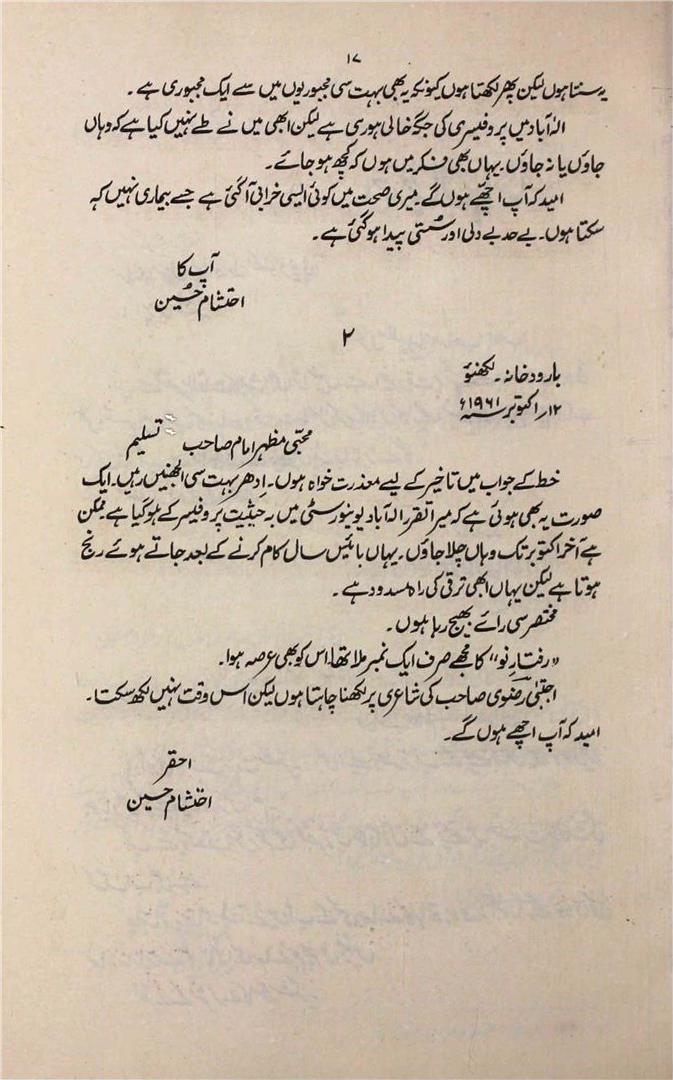 ۱۷
یہ سنتا ہوں لیکن پھر لکھتا ہوں کیونکہ یہ بھی بہت سی مجبوریوں میں سے ایک مجبوری ہے ۔
الہ آباد میں پروفیسری کی جگہ خالی ہوری ہے لیکن ابھی میں نے طے نہیں کیا ہے کہ وہاں
جاؤں یا نہ جاؤں۔ یہاں بھی فکر میں ہوں کہ کچھ ہو جائے ۔
امید کہ آپ اچھے ہوں گے۔ میری صحت میں کوئی ایسی خرابی آگئی ہے جسے بیماری نہیں کہہ
سکتا ہوں۔ بے حد بے دلی اور سُستی پیدا ہو گئی ہے ۔
آپ کا
احتشام حُسین
۲
بارود خانہ ۔ لکھنؤ
۱۲؍ اکتوبر ۱۹۶۱ء
محبّی مظہر امام صاحب تسلیم
خط کے جواب میں تاخیر کے لیے معذرت خواہ ہوں۔ اِدھر بہت سی الجھنیں رہیں۔ ایک
صورت یہ بھی ہوئی ہے کہ میرا تقرر الہ آباد یونیورسٹی میں بہ حیثیت پروفیسر کے ہو گیا ہے ممکن
ہے آخر اکتوبر تک وہاں چلا جاؤں۔ یہاں بائیس سال کام کرنے کے بعد جاتے ہوئے رنج
ہوتا ہے لیکن یہاں ابھی ترقی کی راہ مسدود ہے ۔
مختصر سی رائے بھیج رہا ہوں ۔
"رفتارِ نو" کا مجھے صرف ایک نمبر ملا تھا، اس کو بھی عرصہ ہوا۔
اجتبیٰ رضوی صاحب کی شاعری پر لکھنا چاہتا ہوں لیکن اس وقت نہیں لکھ سکتا ۔
امید کہ آپ اچھے ہوں گے ۔
احقر
احتشام حسین